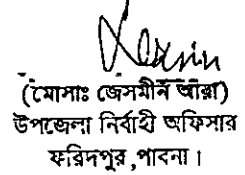 (মোসাঃ জেসমীন আরা)
উপজেলা নির্বাহী অফিসার
ফরিদপুর,পাবনা।